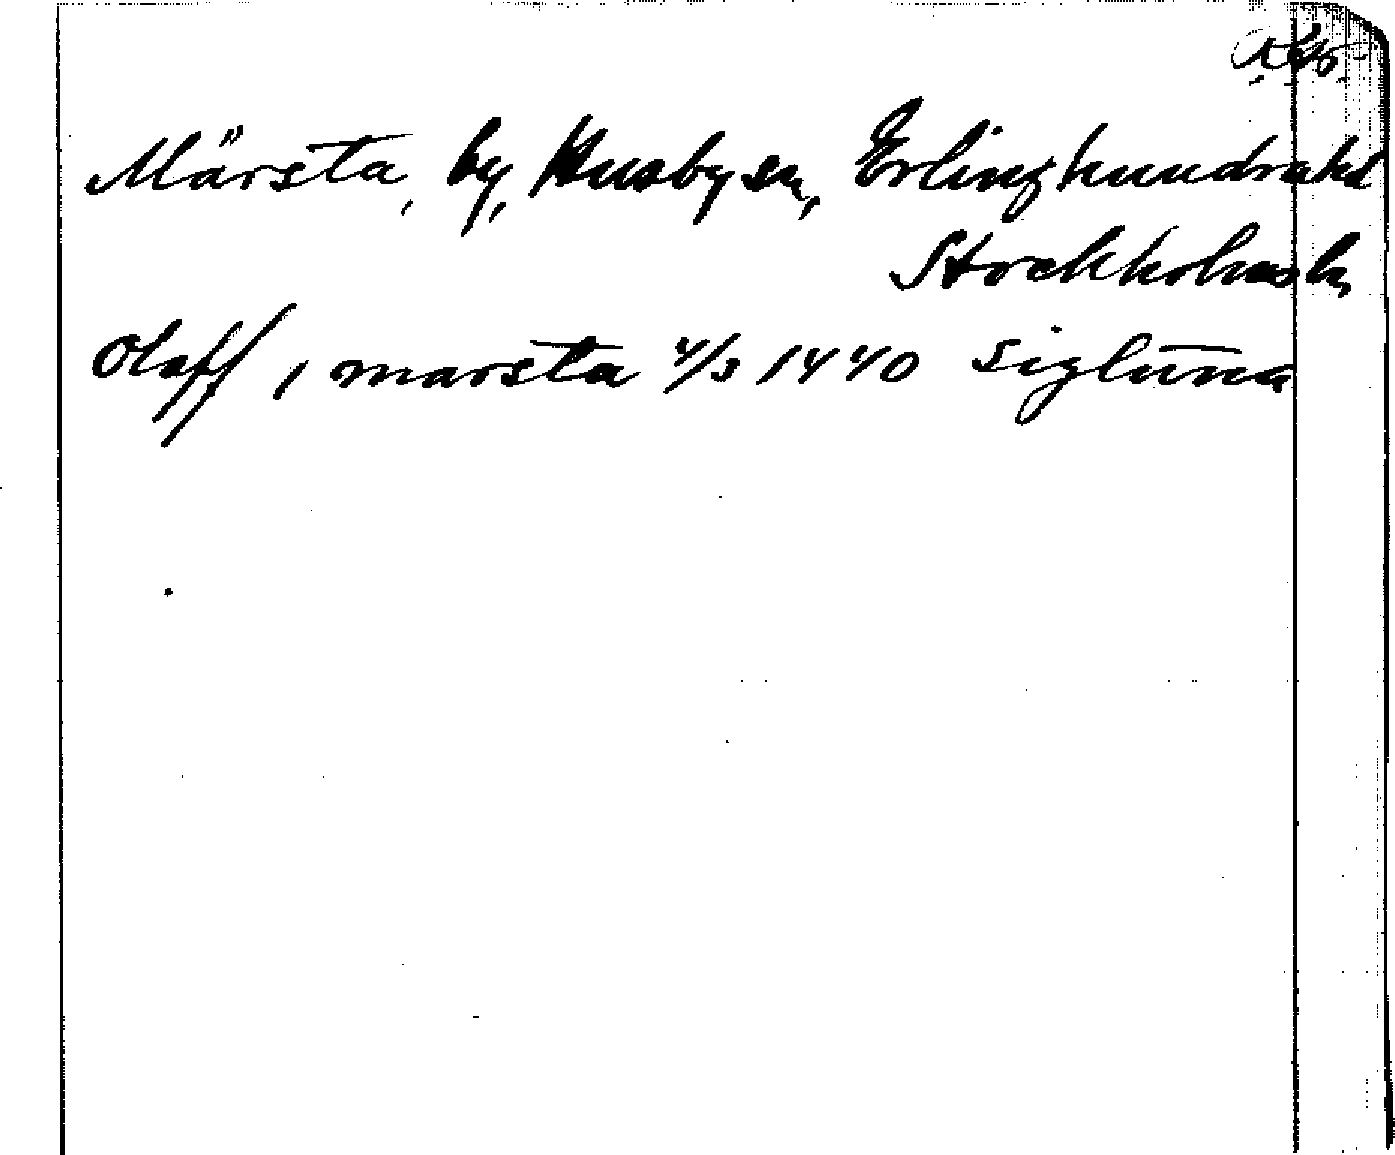 Märsta, by, Husby sn, Erlinghundra hd
Stockholms l.
Olaff i marsta 4/3 1440 Siglūna